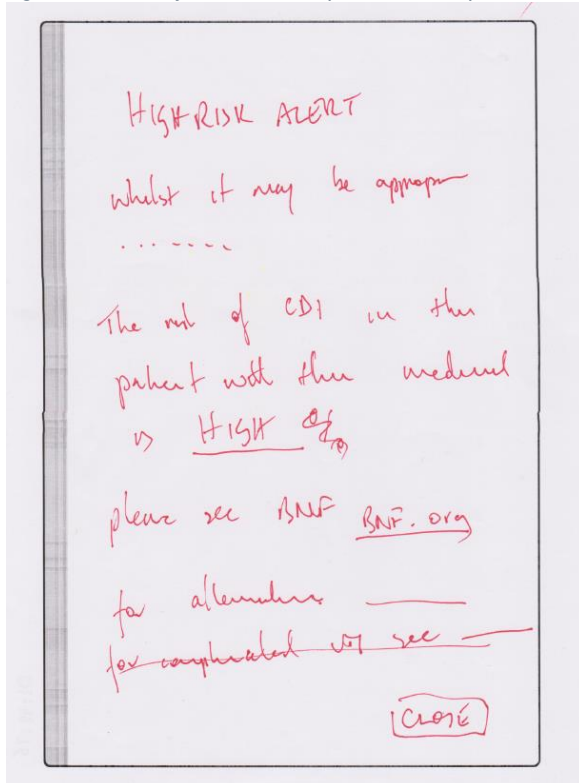 HIGH RISK ALERT
whilst it may be approp
.......
The risk of CDI in this
patient with this
is HIGH %
please see BNF BNF.org
for alternatives
for complicated UTI see
CLOSE